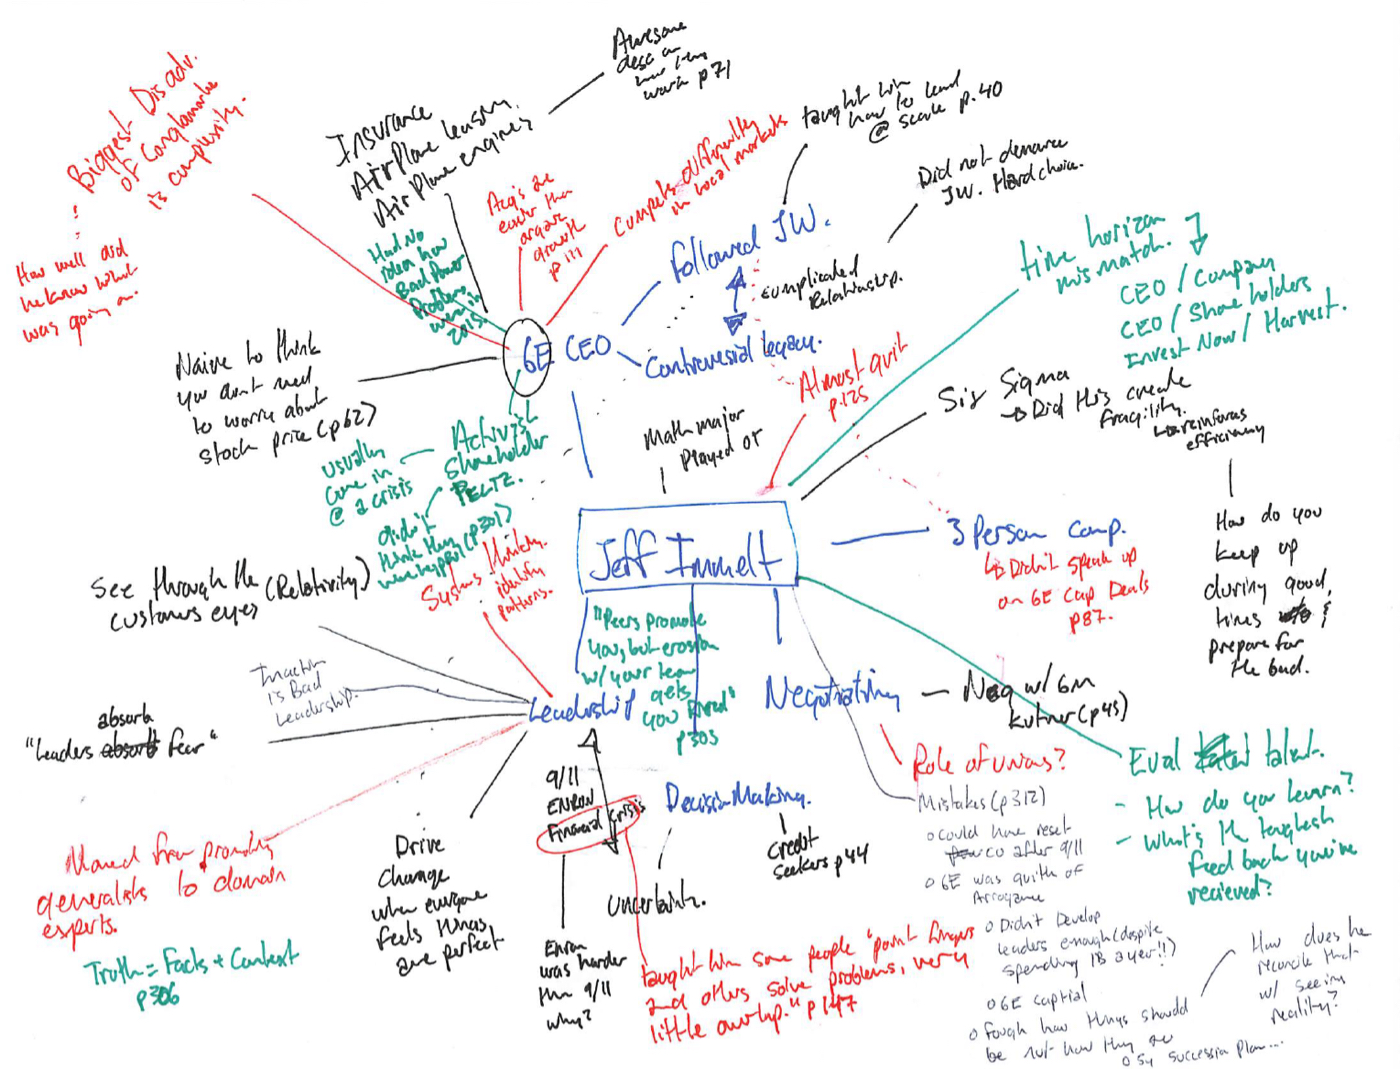 Biggest Disadv.
of Conglomorate
is complexity.
How well did
he know what
was going on.
Insurance
Airplane leasing.
Airplane engines
Awesome
desc on
how they
work p71
Had No
idea how
Bad Power
Problems
were in
2015.
Acq's are
easier than
organic
growth
p 111
Competes differently
in local markets
followed JW.
taught him
how to lead
@ scale p.40
Did not denounce
JW. Hard choice.
complicated
Relationship.
Controversial legacy.
GE CEO
Almost quit
p.125
time horizon
mismatch.
CEO / Company
CEO / Share holders
Invest Now / Harvest.
Six Sigma
→ Did this create
fragility.
↳ reinforces
efficiency
How do you
keep up
during good
times &
prepare for
the bad.
Naive to think
you don't need
to worry about
stock price (p62)
usually
come in
@ a crisis
Activist
Shareholder
PELTZ.
didn't
think they
were hyprs (p301)
Math major
Played OT
Jeff Immelt
3 Person Comp.
↳ Didn't speak up
on GE Cap Deals
p87.
See through the (Relativity)
customers eyes
Systems thinking.
identify
patterns.
Inaction
is Bad
Leadership.
absorb
"Leaders absorb fear"
Leadership
"Peers promote
you, but erosion
w/ your team
gets
you fired"
p303
Negotiating
Neg w/ GM
Kutner (p45)
Role of unions?
Mistakes (p312)
o Could have reset
co after 9/11
o GE was guilty of
Arrogance
o Didn't Develop
leaders enough (despite
spending 1B a year!!)
o GE captial
o fough how things should
be not how they are
o 5y succession plan...
How does he
reconcile that
w/ seeing
reality?
Eval talent.
- How do you learn?
- What's the toughest
feed back you've
recieved?
Decision Making.
Uncertaint.
Credit
Seekers p44
9/11
ENRON
Financial Crisis
Enron
was harder
than 9/11
why?
taught him some people "point fingers
and others solve problems, very
little overlap." p147
Drive
change
when everyone
feels things
are perfect
Moved from promoting
generalists to domain
experts.
Truth = Facts + Context
p306